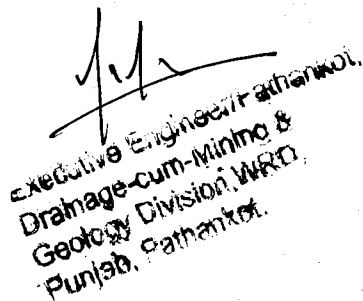 Executive Engineer/Pathankot,
Drainage-cum-Mining &
Geology Division, WRD,
Punjab, Pathankot.